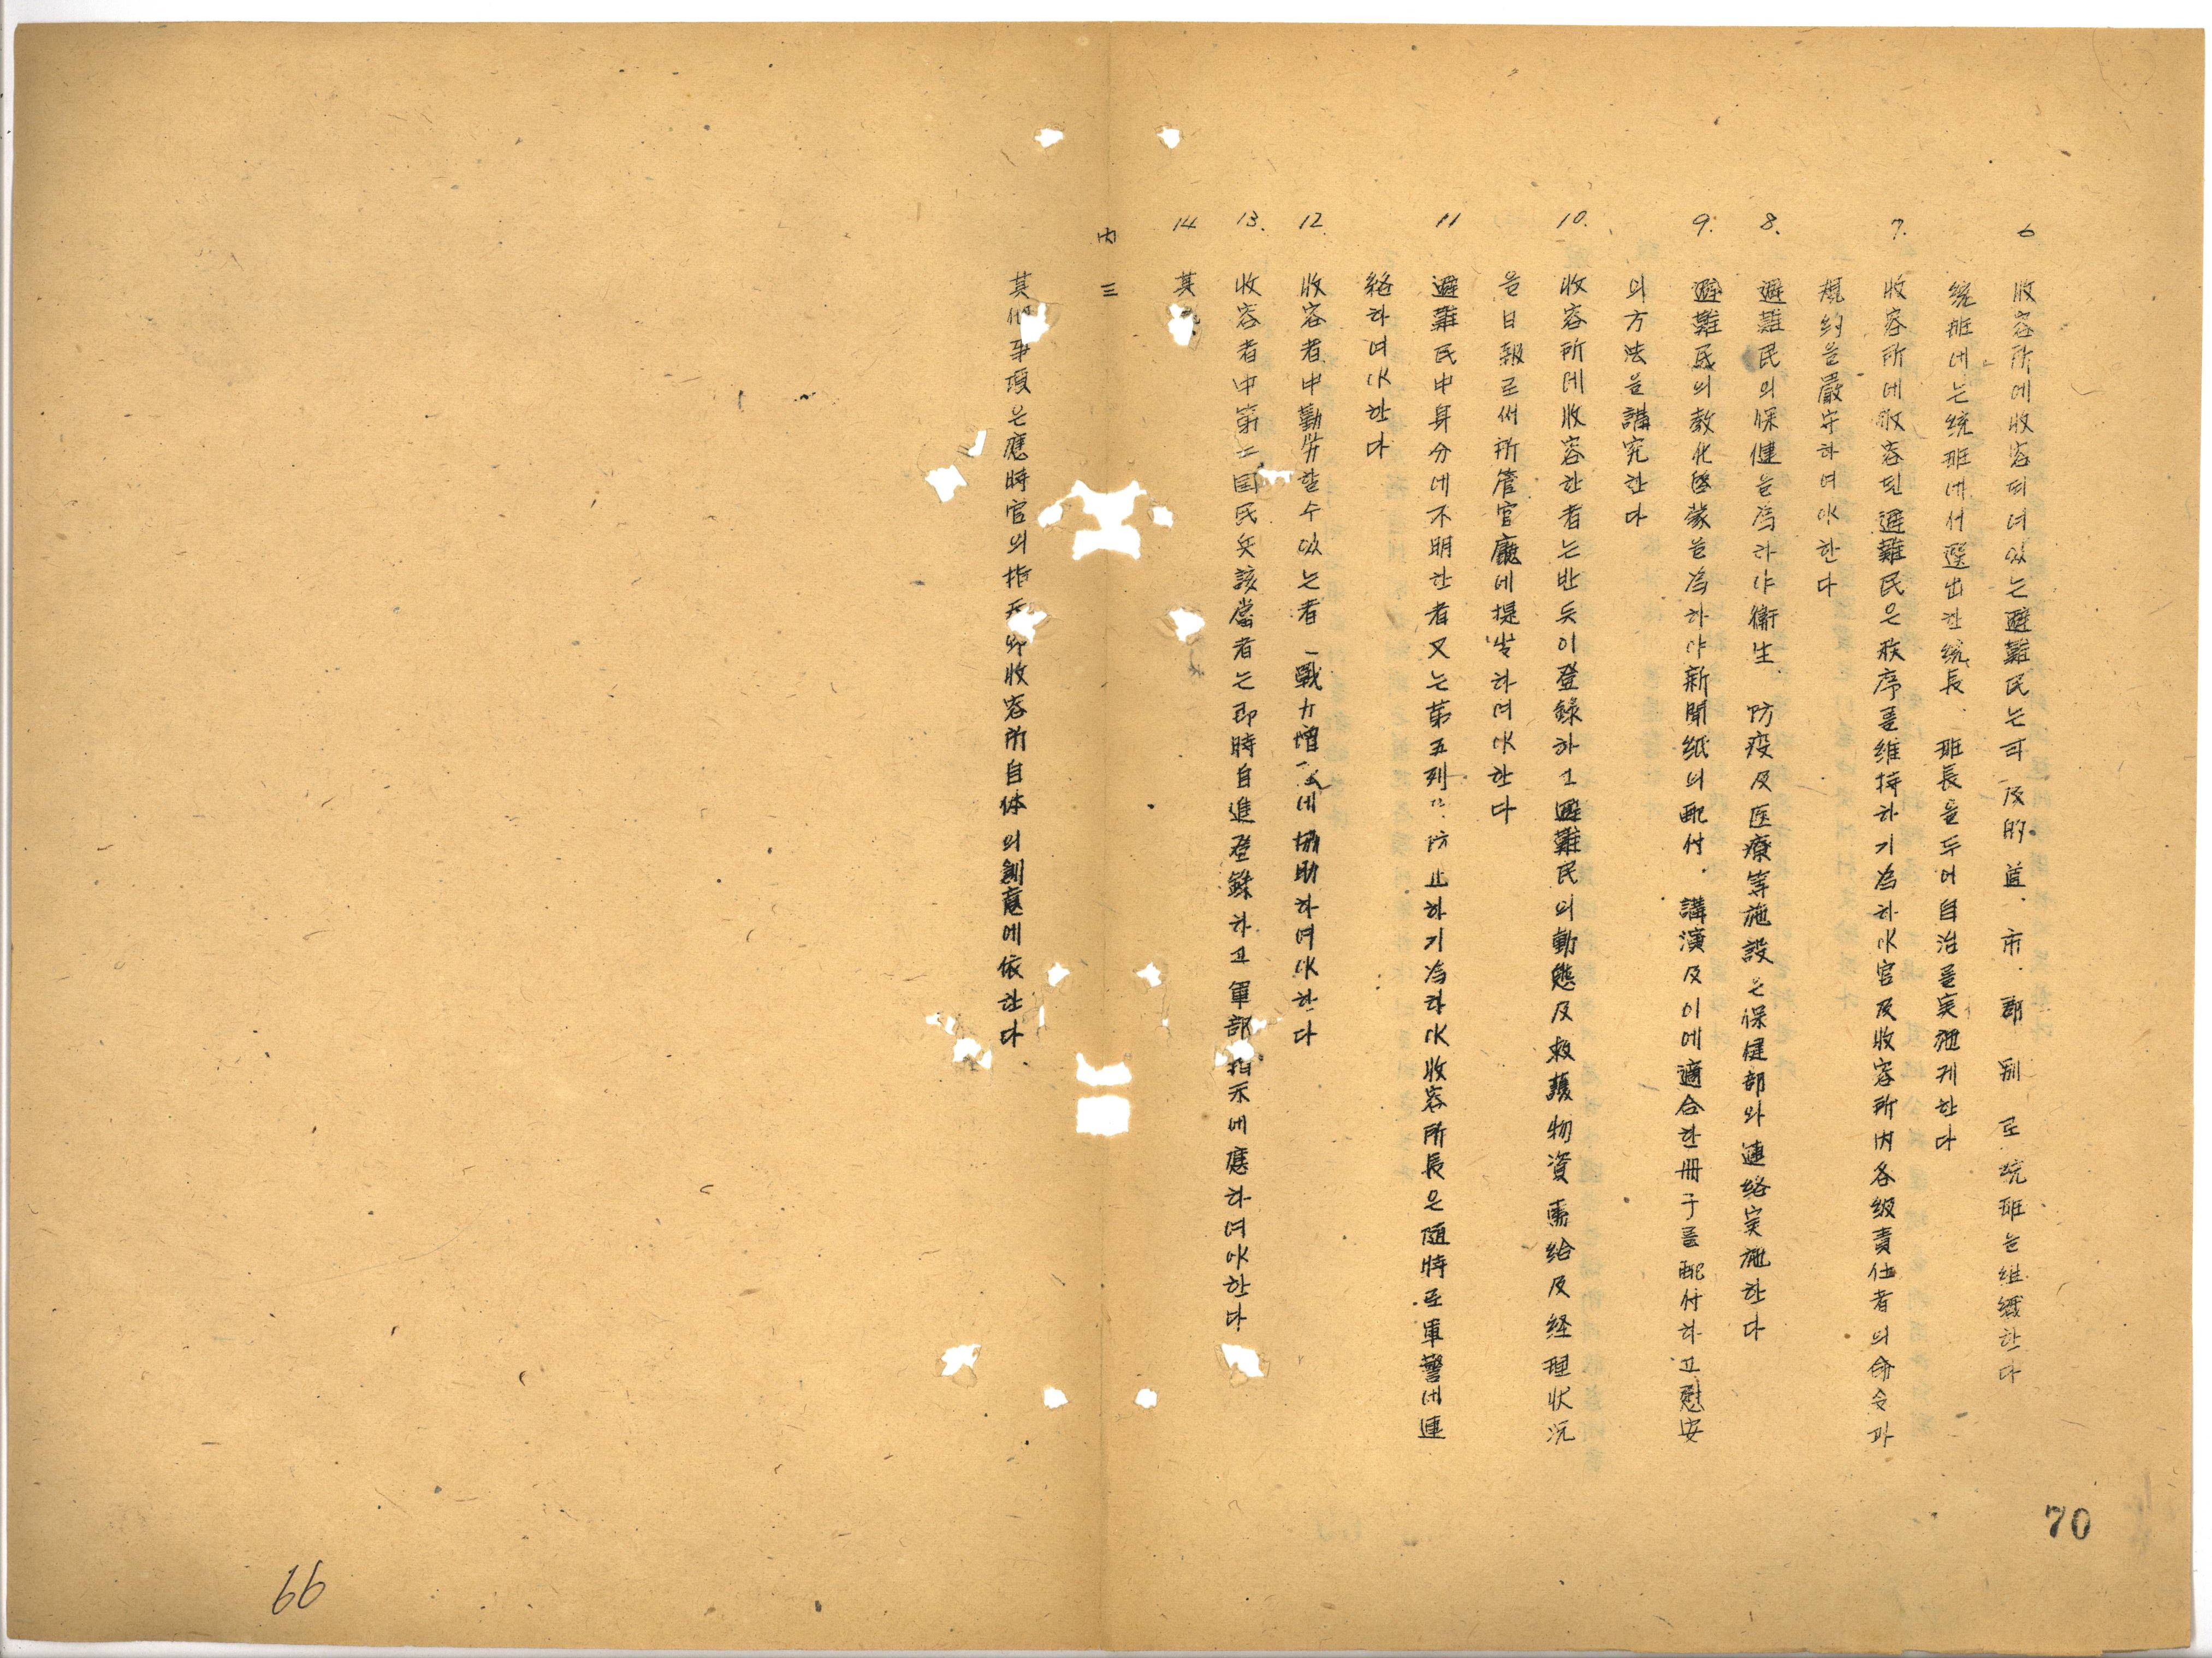 6 收容所에收容되여있는避難民는可及的道.市.郡別로統班는組織한다
統班에는統班에서選出한統長.班長을두어自治를実施케한다
7. 收容所에收容된避難民은秩序를維持하기為하야官及收容所内各級責任者의命令과
規約을嚴守하여야한다
8. 避難民의保健을為하야衛生.防疫及医療等施設은保健部와連絡実施한다
9. 避難民의教化啓蒙을為하야新聞紙의配付.講演及이에適合한冊子를配付하고慰安
의方法을講究한다
10. 收容所에收容한者는반듯이登錄하고避難民의動態及救護物資需給及経理状況
을日報로써所管官廳에提出하여야한다
11 避難民中身分에不明한者又는第五列 防止하기為하야收容所長은随時로軍警에連
絡하여야한다
12. 收容者中勤労할수있는者 戦力增 에協助하여야한다
13. 收容者中第二国民兵該當者는即時自進登錄하고軍部指示에應하여야한다
14 其
内三
其他事項은應時官의指示 收容所自体의創意에依한다
70
66